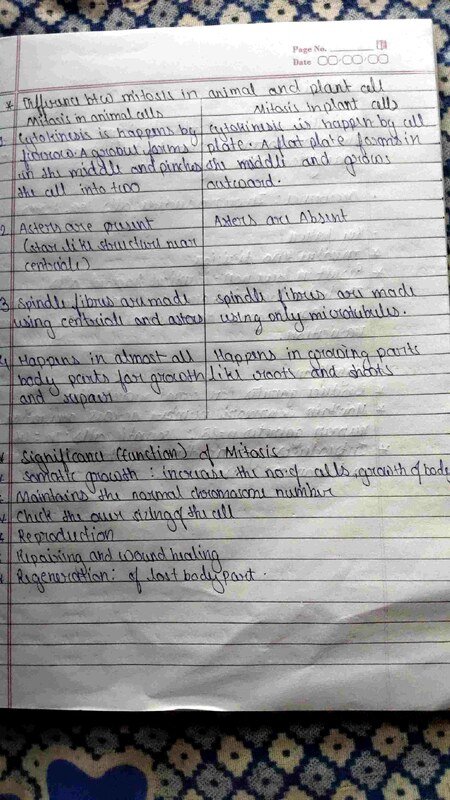 Page No.
Date
* Difference btw mitosis in animal and plant cell
Mitosis in animal cells
Mitosis in plant cells
Cytokinesis is happens by
furrow. A groove forms
in the middle and pinches
the cell into two
Cytokinesis is happen by cell
plate. A flat plate forms in
the middle and grows
outward.
2 Asters are present
(star like structure near
centriole)
Asters are Absent
3 Spindle fibres are made
using centriole and asters
spindle fibres are made
using only microtubules.
4 Happens in almost all
body parts for growth
and repair
Happens in growing parts
like roots and shoots
* Significance (function) of Mitosis
* Somatic growth : increase the no of cells, growth of body
Maintains the normal chromosome number
Check the over sizing of the cell
* Reproduction
Repairing and wound healing
Regeneration: of lost body part.